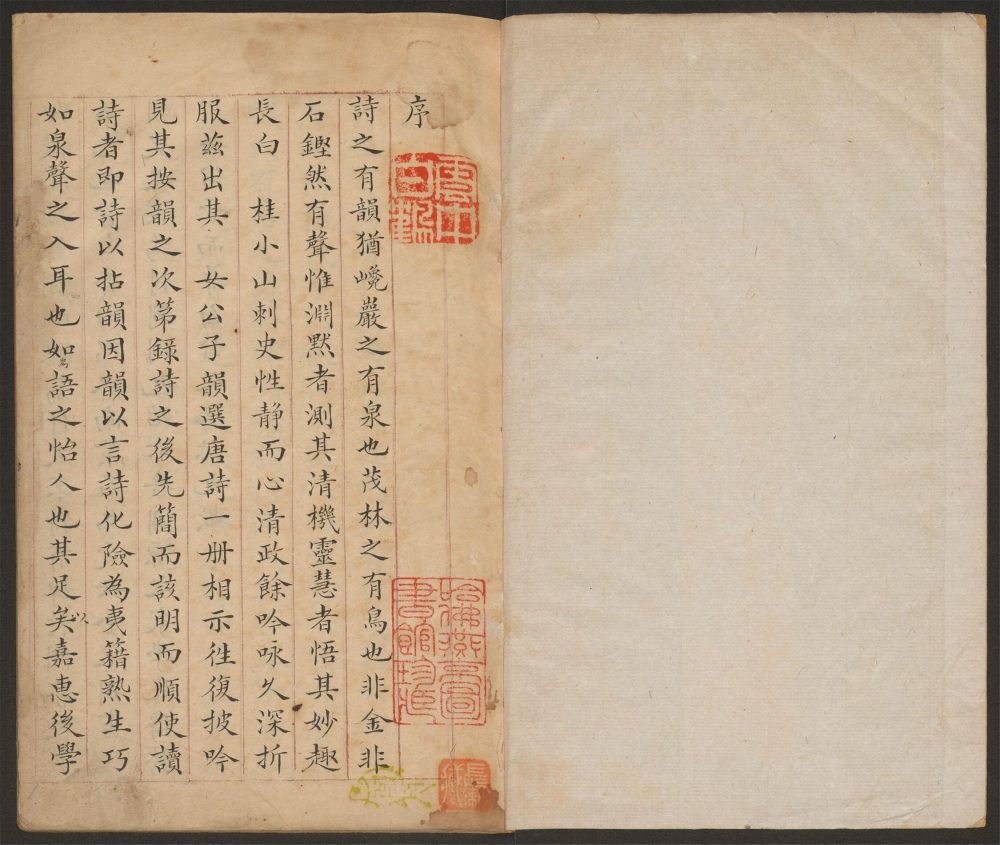 序
詩之有韻猶巉巖之有泉也茂林之有鳥也非金非
石鏗然有聲惟淵默者測其清機靈慧者悟其妙趣
長白 桂小山刺史性静而心清政餘吟咏久深折
服茲出其 女公子韻選唐詩一册相示徃復披吟
見其按韻之次第錄詩之後先簡而該明而順使讀
詩者即詩以拈韻因韻以言詩化險為夷籍熟生巧
如泉聲之入耳也如鳥語之怡人也其足以矣嘉惠後學
哈佛燕京圖書館珍藏